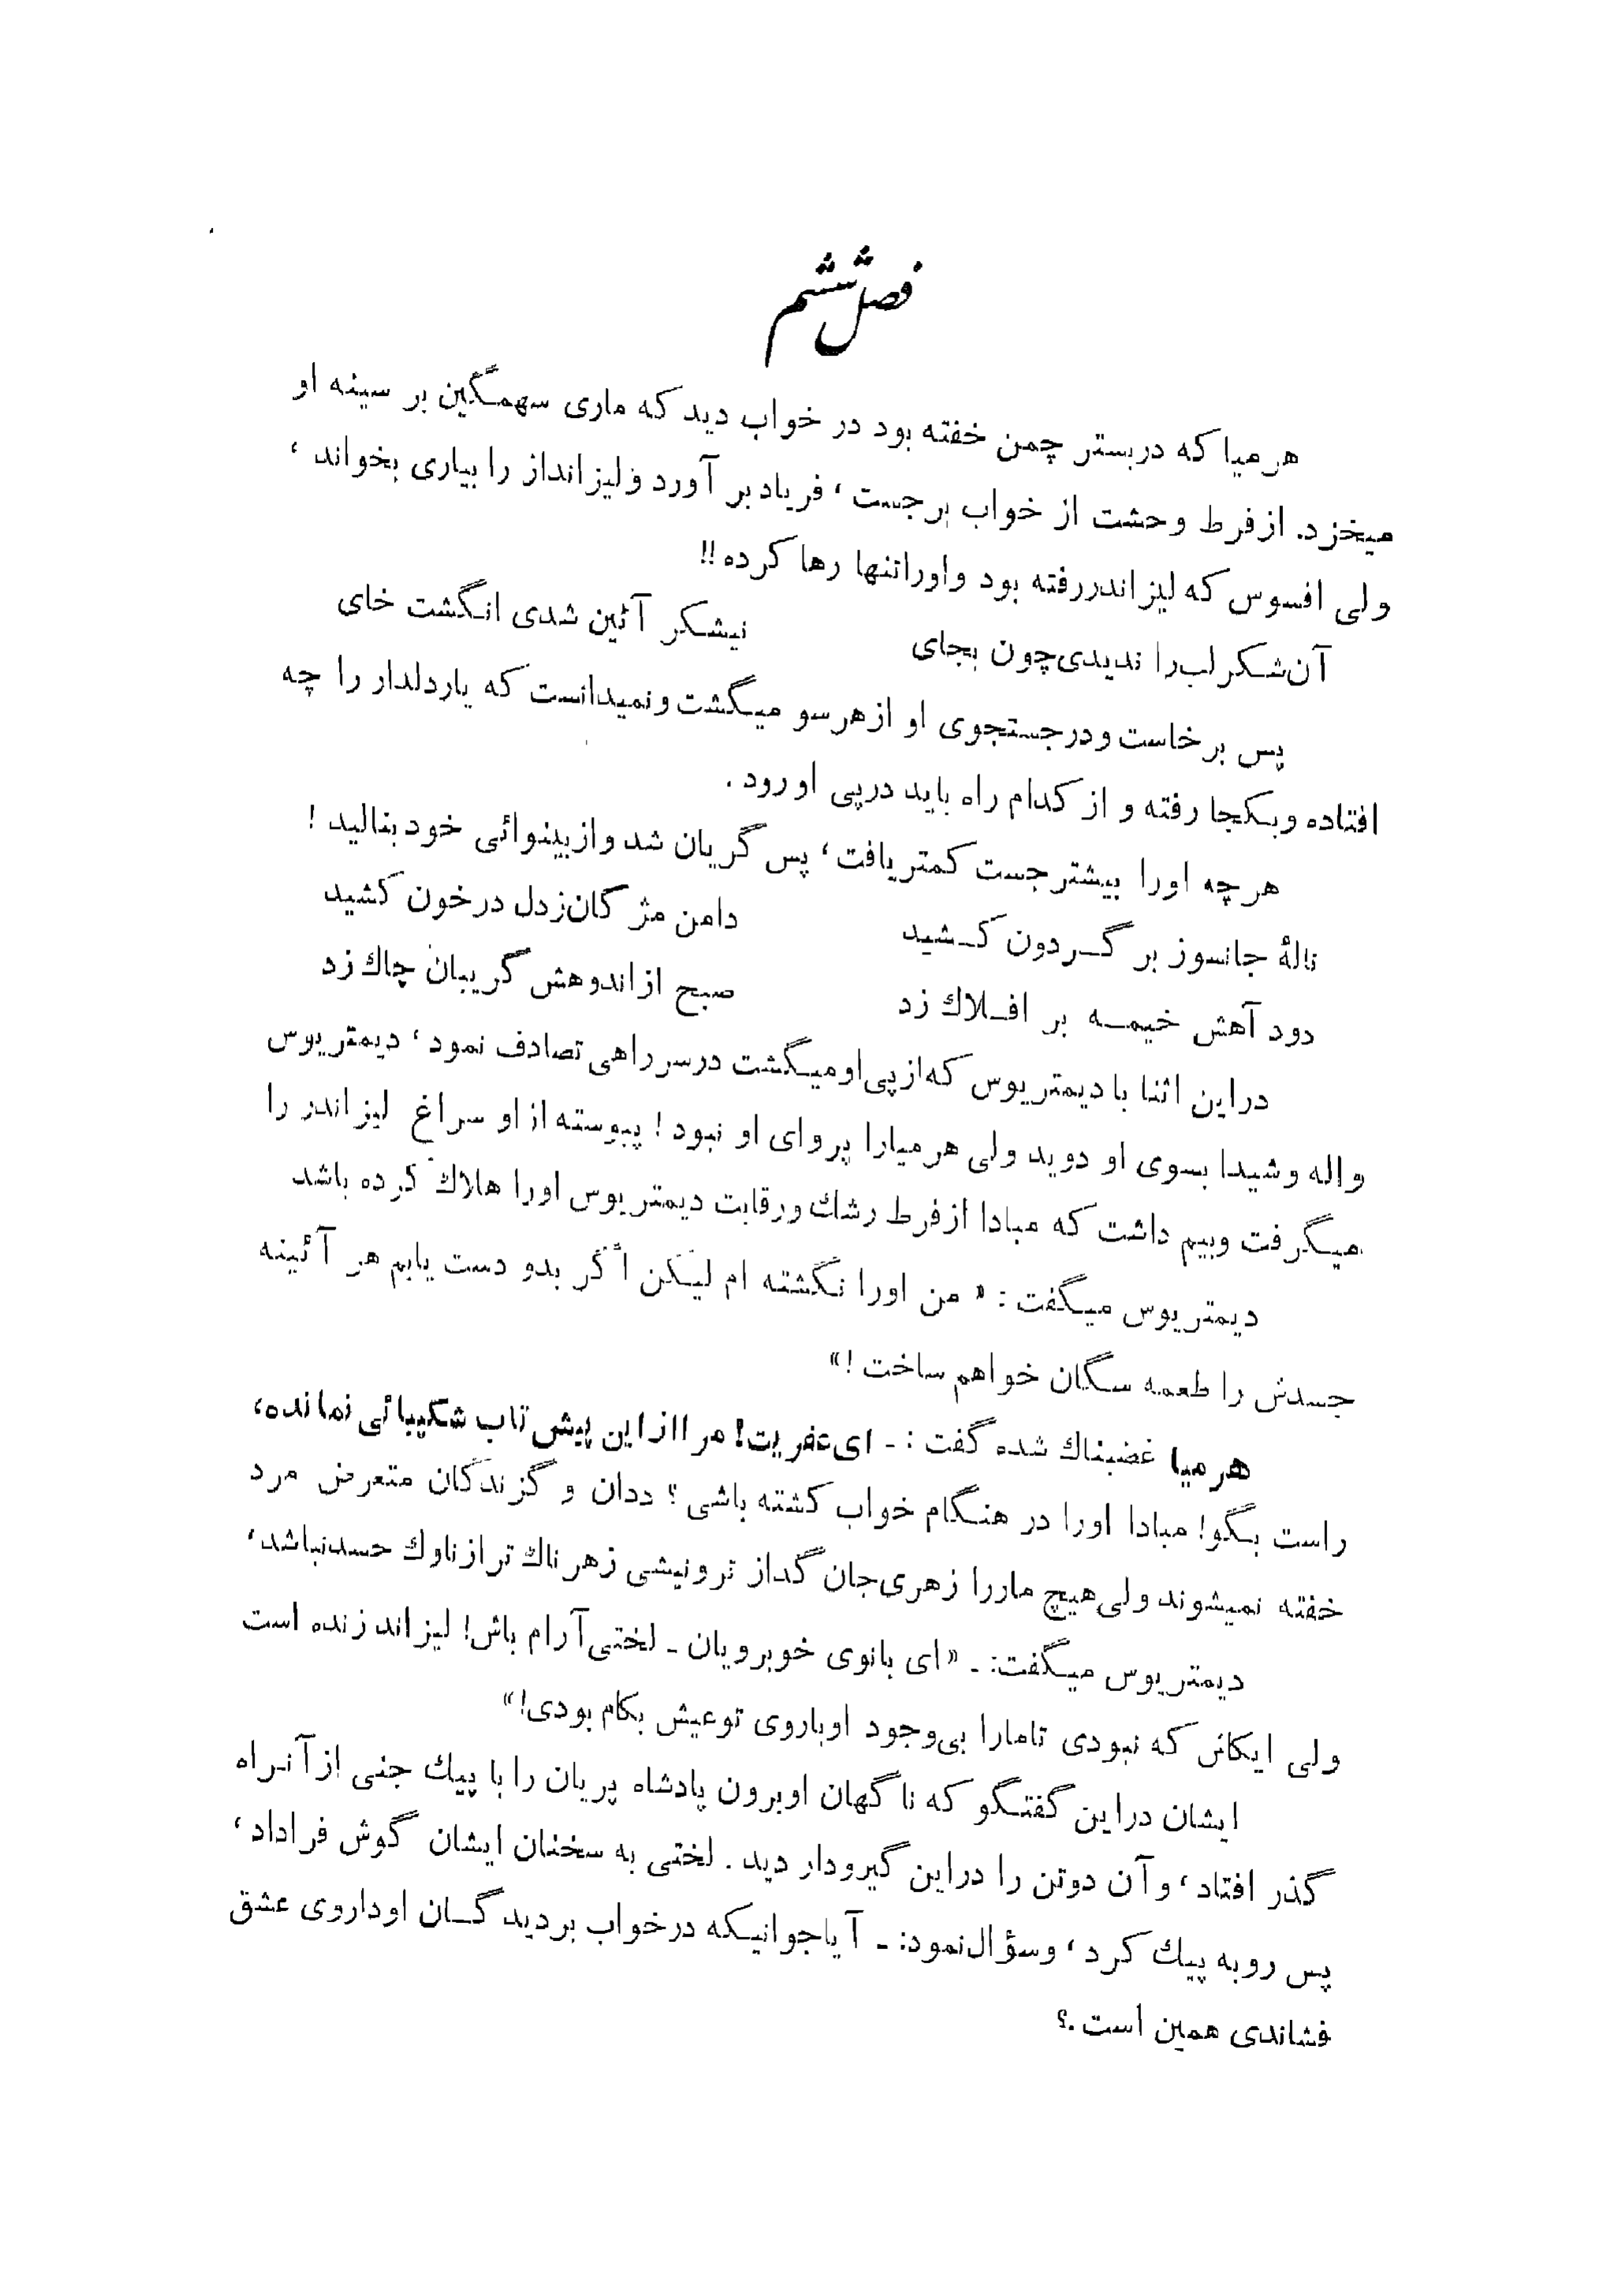 فصل ششم
هرمیا که دربستر چمن خفته بود در خواب دید که ماری سهمگین بر سینه او
میخزد. ازفرط وحشت از خواب برجست ، فریاد بر آورد ولیزانداز را بیاری بخواند ،
ولی افسوس که لیزاندر رفته بود واوراتنها رها کرده !!
آن شکر لب را ندیدی چون بجای نیشکر آئین شدی انگشت خای
پس برخاست ودرجستجوی او ازهرسو میگشت ونمیدانست که یاردلدار را چه
افتاده وبکجا رفته و از کدام راه باید درپی او رود .
هرچه اورا بیشترجست کمتریافت ، پس گریان شد وازبینوائی خود بنالید !
نالۀ جانسوز بر گردون کشید دامن مژگان زدل درخون کشید
دود آهش خیمه بر افلاك زد صبح ازاندوهش گریبان چاك زد
دراین اثنا با دیمتریوس که از پی او میگشت درسرراهی تصادف نمود ، دیمتریوس
واله وشیدا بسوی او دوید ولی هرمیارا پروای او نبود ! پیوسته از او سراغ لیزاندر را
میگرفت وبیم داشت که مبادا ازفرط رشك ورقابت دیمتریوس اورا هلاك کرده باشد
دیمتریوس میگفت : « من اورا نکشته ام لیکن اگر بدو دست یابم هر آئینه
جسدش را طعمه سگان خواهم ساخت !»
هرمیا غضبناك شده گفت : ـ ای عفریت! مرا از این پیش تاب شکیبائی نمانده،
راست بگو! مبادا اورا در هنگام خواب کشته باشی ؟ ددان و گزندگان متعرض مرد
خفته نمیشوند ولی هیچ ماررا زهری جان گداز تر ونیشی زهرناك تر ازناوك حسدنباشد،
دیمتریوس میگفت: ـ «ای بانوی خوبرویان ـ لختی آرام باش! لیزاندر زنده است
ولی ایکاش که نبودی تامارا بی وجود اوباروی توعیش بکام بودی!»
ایشان دراین گفتگو که ناگهان اوبرون پادشاه پریان را با پیك جنی از آنراه
گذر افتاد ، و آن دوتن را دراین گیرودار دید . لختی به سخنان ایشان گوش فراداد ،
پس روبه پیك کرد ، وسؤال نمود: ـ آیا جوانیکه درخواب بردیدگان اوداروی عشق
فشاندی همین است .؟